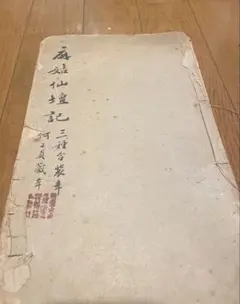 麻姑仙壇記
三種合裝本
何子貞藏本